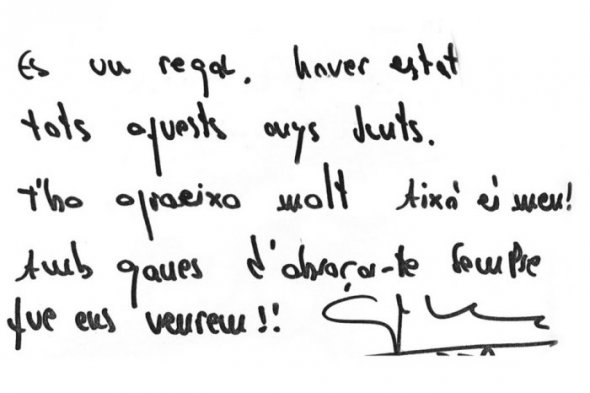 Es un regal. haver estat
tots aquests anys Junts.
t'ho agraeixo molt Aixà és meu!
Amb ganes d'abraçar-te Sempre
que ens veurem!!